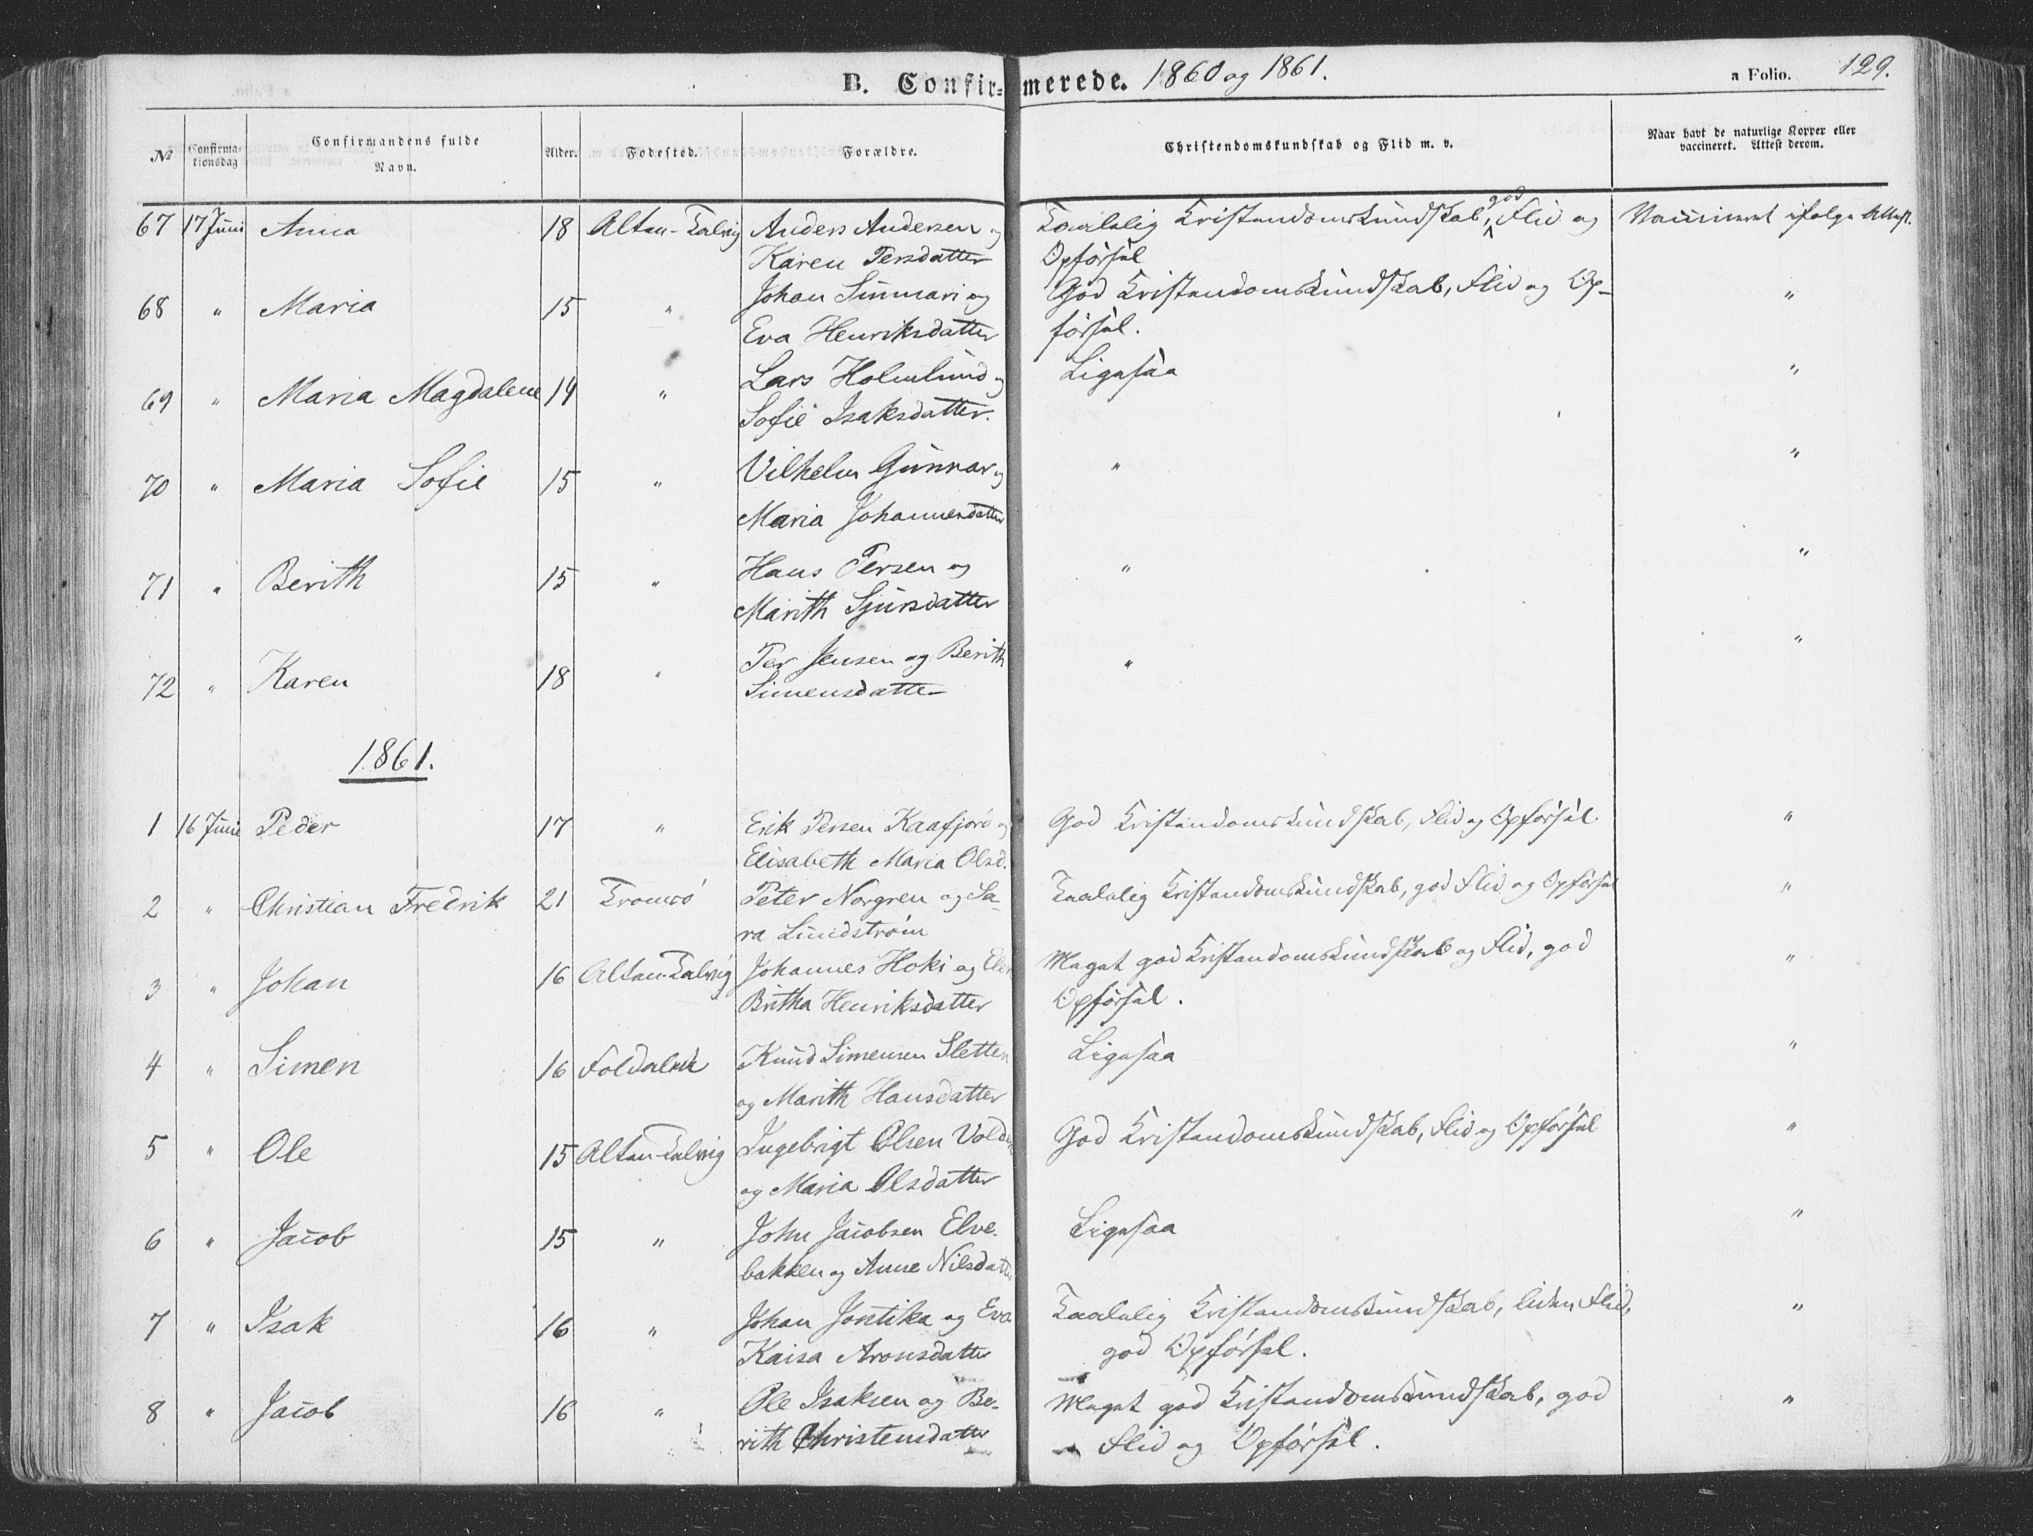 B. Confir-merede. 1860 og 1861. a Folio. 129.
No Confirma-tionsdag Confirmandens fulde Navn. Alder. Fødested. Forældre. Christendomskundskab og Flid m. v. Naar havt de naturlige Kopper eller vaccineret. Attest derom.
67 17 Juni Anna 18 Alten-Talvig Anders Andersen og Taalelig Kristendomskundskab, god Flid og Vaccineret ifølge Attest.
Karen Persdatter Opførsel
68 " Maria 15 " Johan Sinmari og God Kristendomskundskab, Flid og Op-
Eva Henriksdatter førsel. "
69 " Maria Magdalene 14 " Lars Holmlund og Ligesaa "
Sofie Isaksdatter.
70 " Maria Sofie 15 " Vilhelm Gunnar og " "
Maria Johannesdatter
71 " Berith 15 " Hans Persen og " "
Marith Sjursdatter
72 " Karen 18 " Per Jensen og Berith " "
Simensdatter
1861.
1 16 Juni Peder 17 " Erik Persen Kaafjord og God Kristendomskundskab, Flid og Opførsel. "
Elisabeth Maria Olsd.
2 " Christian Fredrik 21 Tromsö Peter Norgren og Sa- Taalelig Kristendomskundskab, god Flid og Opførsel "
ra Lundström
3 " Johan 16 Alten-Talvig Johannes Hoki og Meget god Kristendomskundskab og Flid, god "
Britha Henriksdatter Opførsel.
4 " Simen 16 Foldalen Knud Simensen Sletten Ligesaa "
og Marith Hansdatter
5 " Ole 15 Alten-Talvig Ingebrigt Olsen Volden God Kristendomskundskab, Flid og Opførsel "
og Maria Olsdatter
6 " Jacob 15 " John Jacobsen Elve- Ligesaa "
bakken og Anne Nilsdatter
7 " Isak 16 " Johan Jontika og Eva Taalelig Kristendomskundskab, liden Flid, "
Kaisa Aronsdatter god Opførsel.
8 " Jacob 16 " Ole Isaksen og Be- Meget god Kristendomskundskab, god "
rith Christensdatter Flid og Opførsel.